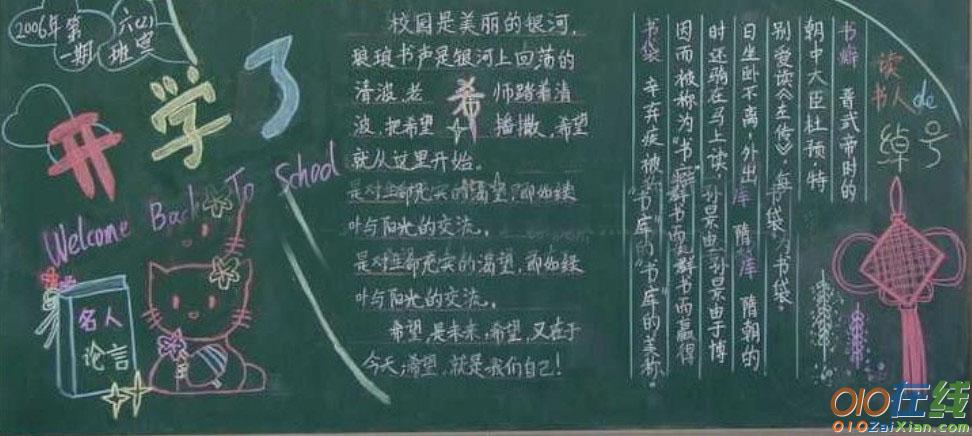 2006年第
一期
六(2)
班宣
开学了
Welcome Back To School
名人
论言
校园是美丽的银河,
琅琅书声是银河上回荡的
清波,老 师踏着清
波,把希望 播撒,希望
就从这里开始。
希
是对生命充实的渴望,即如绿
叶与阳光的交流。
是对生命充实的渴望,即如绿
叶与阳光的交流。
希望,是未来,希望,又在于
今天,希望,就是我们自己!
读
书人de
绰号
书癖 晋武帝时的
朝中大臣杜预,特
别爱读《左传》,每
日坐卧不离,外出
时还驮在马上读,
因而被称为"书
书袋
书库 隋朝的
孙景由于博
群书而赢得
"书库"的美称。
010在线
010ZaiXian.com